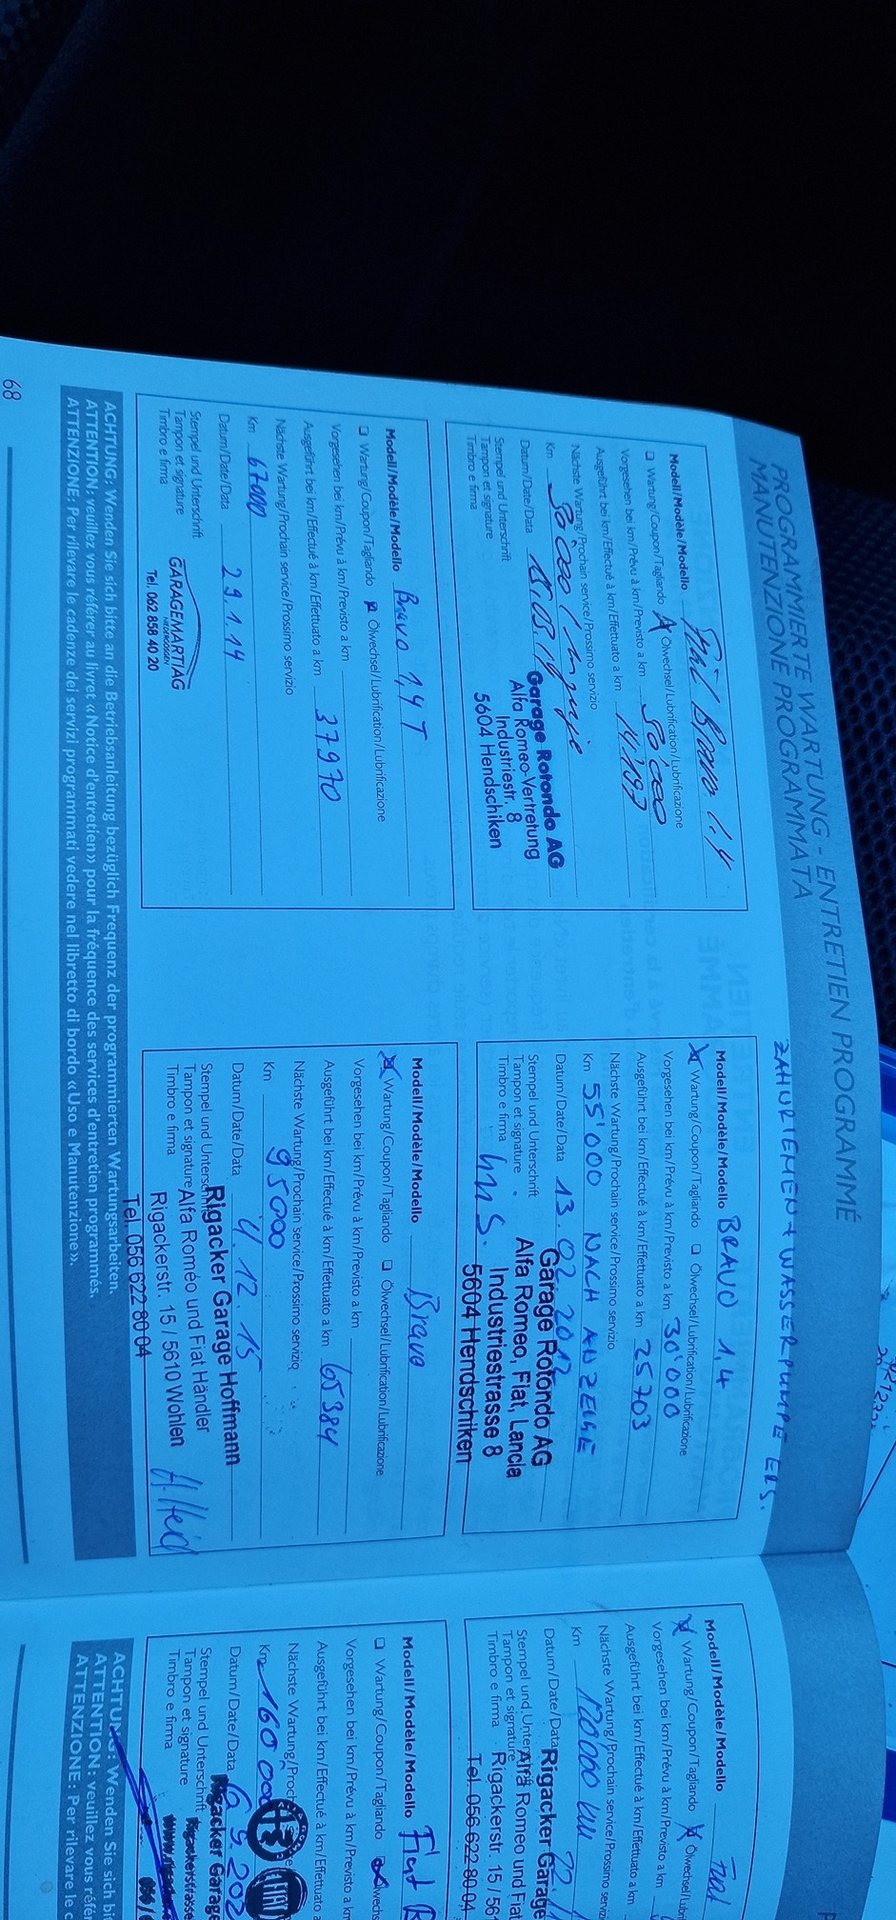 PROGRAMMIERTE WARTUNG - ENTRETIEN PROGRAMMÉ
MANUTENZIONE PROGRAMMATA
Modell/Modèle/Modello Bravo 1.4
❑ Wartung/Coupon/Tagliando ❑ Ölwechsel/Lubrification/Lubrificazione
Vorgesehen bei km/Prévu à km/Previsto a km
Ausgeführt bei km/Effectué à km/Effettuato a km
Nächste Wartung/Prochain service/Prossimo servizio
Km
Datum/Date/Data
Stempel und Unterschrift
Tampon et signature
Timbro e firma
Garage Rotondo AG
Alfa Romeo-Vertretung
Industriestr. 8
5604 Hendschiken
ZAHNRIEMEN + WASSERPUMPE ERS.
Modell/Modèle/Modello BRAVO 1,4
❑ Wartung/Coupon/Tagliando ❑ Ölwechsel/Lubrification/Lubrificazione
Vorgesehen bei km/Prévu à km/Previsto a km 30'000
Ausgeführt bei km/Effectué à km/Effettuato a km 25703
Nächste Wartung/Prochain service/Prossimo servizio
Km 55'000 NACH ANZEIGE
Datum/Date/Data 13.02.2012
Stempel und Unterschrift
Tampon et signature
Timbro e firma
Garage Rotondo AG
Alfa Romeo, Fiat, Lancia
Industriestrasse 8
5604 Hendschiken
Modell/Modèle/Modello Bravo 1,4 T
❑ Wartung/Coupon/Tagliando ❑ Ölwechsel/Lubrification/Lubrificazione
Vorgesehen bei km/Prévu à km/Previsto a km
Ausgeführt bei km/Effectué à km/Effettuato a km 37970
Nächste Wartung/Prochain service/Prossimo servizio
Km 67000
Datum/Date/Data 29.1.14
Stempel und Unterschrift
Tampon et signature
Timbro e firma
GARAGE MARTI AG
Tel. 062 858 40 20
Modell/Modèle/Modello Bravo
❑ Wartung/Coupon/Tagliando ❑ Ölwechsel/Lubrification/Lubrificazione
Vorgesehen bei km/Prévu à km/Previsto a km
Ausgeführt bei km/Effectué à km/Effettuato a km 65384
Nächste Wartung/Prochain service/Prossimo servizio
Km 95000
Datum/Date/Data 4.12.15
Stempel und Unterschrift
Tampon et signature
Timbro e firma
Rigacker Garage Hoffmann
Alfa Roméo und Fiat Händler
Rigackerstr. 15 / 5610 Wohlen
Tel. 056 622 80 04
ACHTUNG: Wenden Sie sich bitte an die Betriebsanleitung bezüglich Frequenz der programmierten Wartungsarbeiten.
ATTENTION: veuillez vous référer au livret «Notice d'entretien» pour la fréquence des services d'entretien programmés.
ATTENZIONE: Per rilevare le cadenze dei servizi programmati vedere nel libretto di bordo «Uso e Manutenzione».
68
Modell/Modèle/Modello Fiat
❑ Wartung/Coupon/Tagliando ❑ Ölwechsel/Lubr
Vorgesehen bei km/Prévu à km/Previsto a km
Ausgeführt bei km/Effectué à km/Effettuato a km
Nächste Wartung/Prochain service/Prossimo servizio
Km 120000 km
Datum/Date/Data
Stempel und Unterschrift
Tampon et signature
Timbro e firma
Rigacker Garage
Alfa Romeo und Fiat
Rigackerstr. 15 / 561
Tel. 056 622 80 04
Modell/Modèle/Modello Fiat
❑ Wartung/Coupon/Tagliando
Vorgesehen bei km/Prévu à km/Previsto a km
Ausgeführt bei km/Effectué à km/Effettuato a
Nächste Wartung
Km 160000
Datum/Date/Data
Stempel und Unterschrift
Tampon et signature
Timbro e firma
Rigacker Garage
FIAT
ACHTUNG: Wenden Sie sich bit
ATTENTION: veuillez vous référ
ATTENZIONE: Per rilevare le c